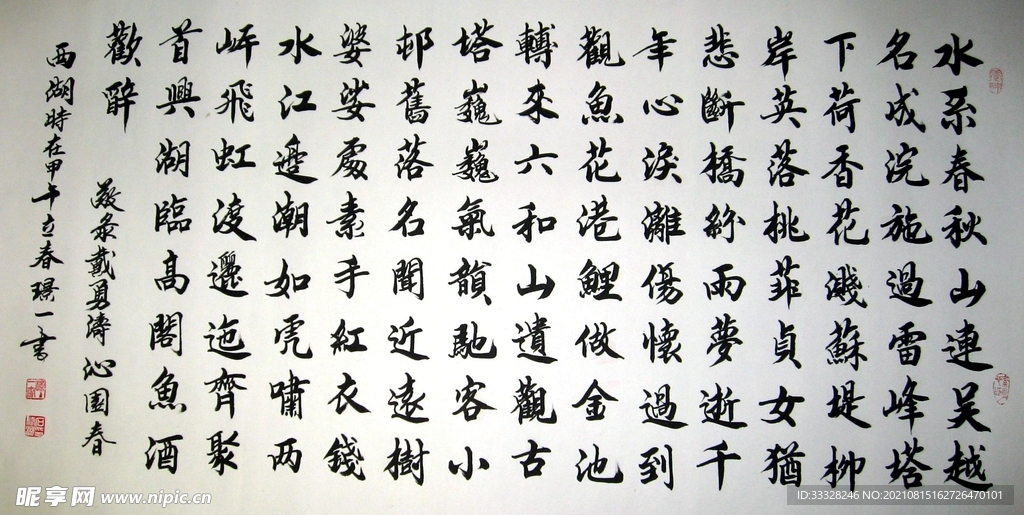 水系春秋山連吴越
名成浣施過雷峰塔
下荷香花濺蘇堤柳
岸英落桃菲貞女猶
悲斷橋紛雨夢逝千
年心淚灕傷懷過到
觀魚花港鯉做金池
轉來六和山遺觀古
塔巍巍氣韻馳客小
邨舊落名聞近遠樹
婆娑處素手紅衣錢
水江邊潮如虎嘯两
岍飛虹渡邐迤齊聚
首興湖臨高閣魚酒
歡醉
敬录戴勇濤沁園春
西湖時在甲午立春璟一書
昵享网 www.nipic.cn
ID:33328246 NO:20210815162726470101